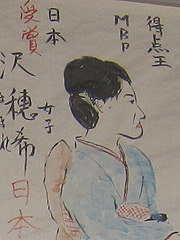 得点王
MBP
日本
女子
受賞
沢穂希
日本